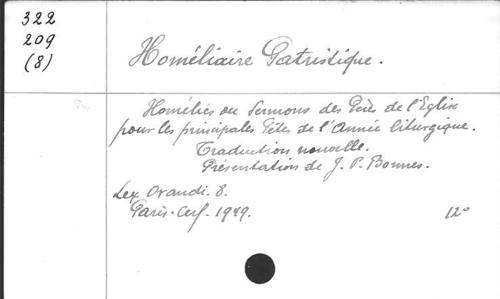 322
209
(8)
Homéliaire Patristique.
Homélies ou Sermons des Pères de l'Eglise
pour les principales Fêtes de l'Année liturgique.
Traduction nouvelle.
Présentation de J. P. Bonnes.
Lex Orandi. 8.
Paris. Cerf. 1949.
12°